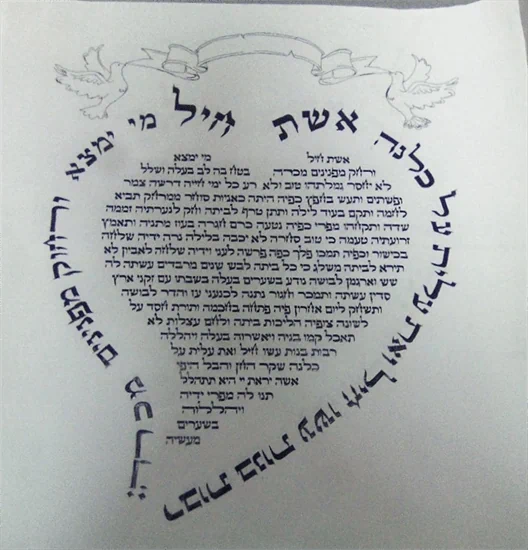 אשת חיל מי ימצא ורחוק מפנינים מכרה
רבות בנות עשו חיל ואת עלית על כלנה
אשת חיל מי ימצא
ורחוק מפנינים מכרה בטח בה לב בעלה ושלל
לא יחסר גמלתהו טוב ולא רע כל ימי חייה דרשה צמר
ופשתים ותעש בחפץ כפיה היתה כאניות סוחר ממרחק תביא
לחמה ותקם בעוד לילה ותתן טרף לביתה וחק לנערתיה זממה
שדה ותקחהו מפרי כפיה נטעה כרם חגרה בעוז מתניה ותאמץ
זרועתיה טעמה כי טוב סחרה לא יכבה בלילה נרה ידיה שלחה
בכישור וכפיה תמכו פלך כפה פרשה לעני וידיה שלחה לאביון לא
תירא לביתה משלג כי כל ביתה לבש שנים מרבדים עשתה לה
שש וארגמן לבושה נודע בשערים בעלה בשבתו עם זקני ארץ
סדין עשתה ותמכר וחגור נתנה לכנעני עז והדר לבושה
ותשחק ליום אחרון פיה פתחה בחכמה ותורת חסד על
לשונה צופיה הליכות ביתה ולחם עצלות לא
תאכל קמו בניה ויאשרוה בעלה ויהללה
רבות בנות עשו חיל ואת עלית על
כלנה שקר החן והבל היופי
אשה יראת יי היא תתהלל
תנו לה מפרי ידיה
ויהללוה
בשערים
מעשיה